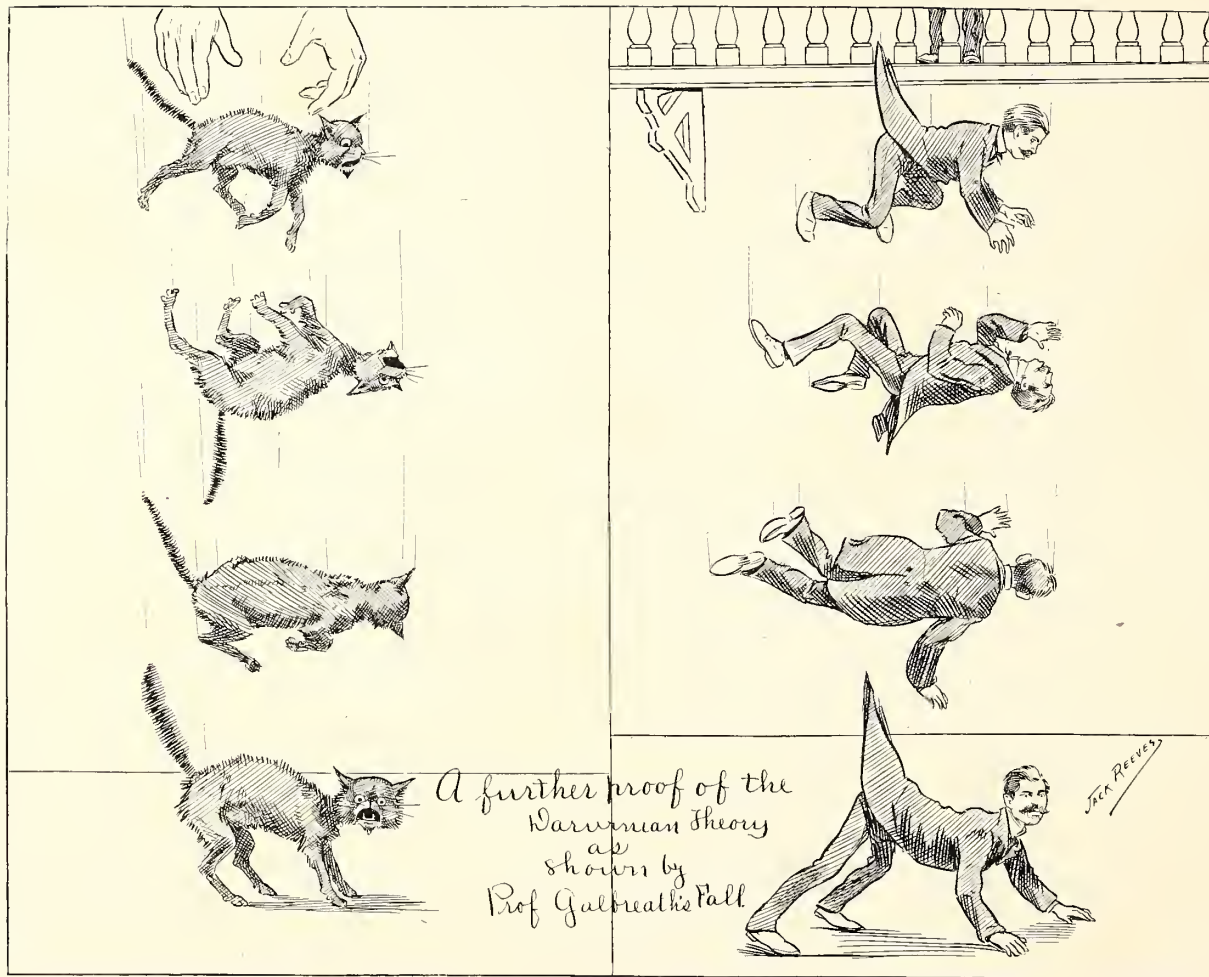 A further proof of the
Darwinian Theory
as
shown by
Prof Galbreath's Fall.
JACK REEVES